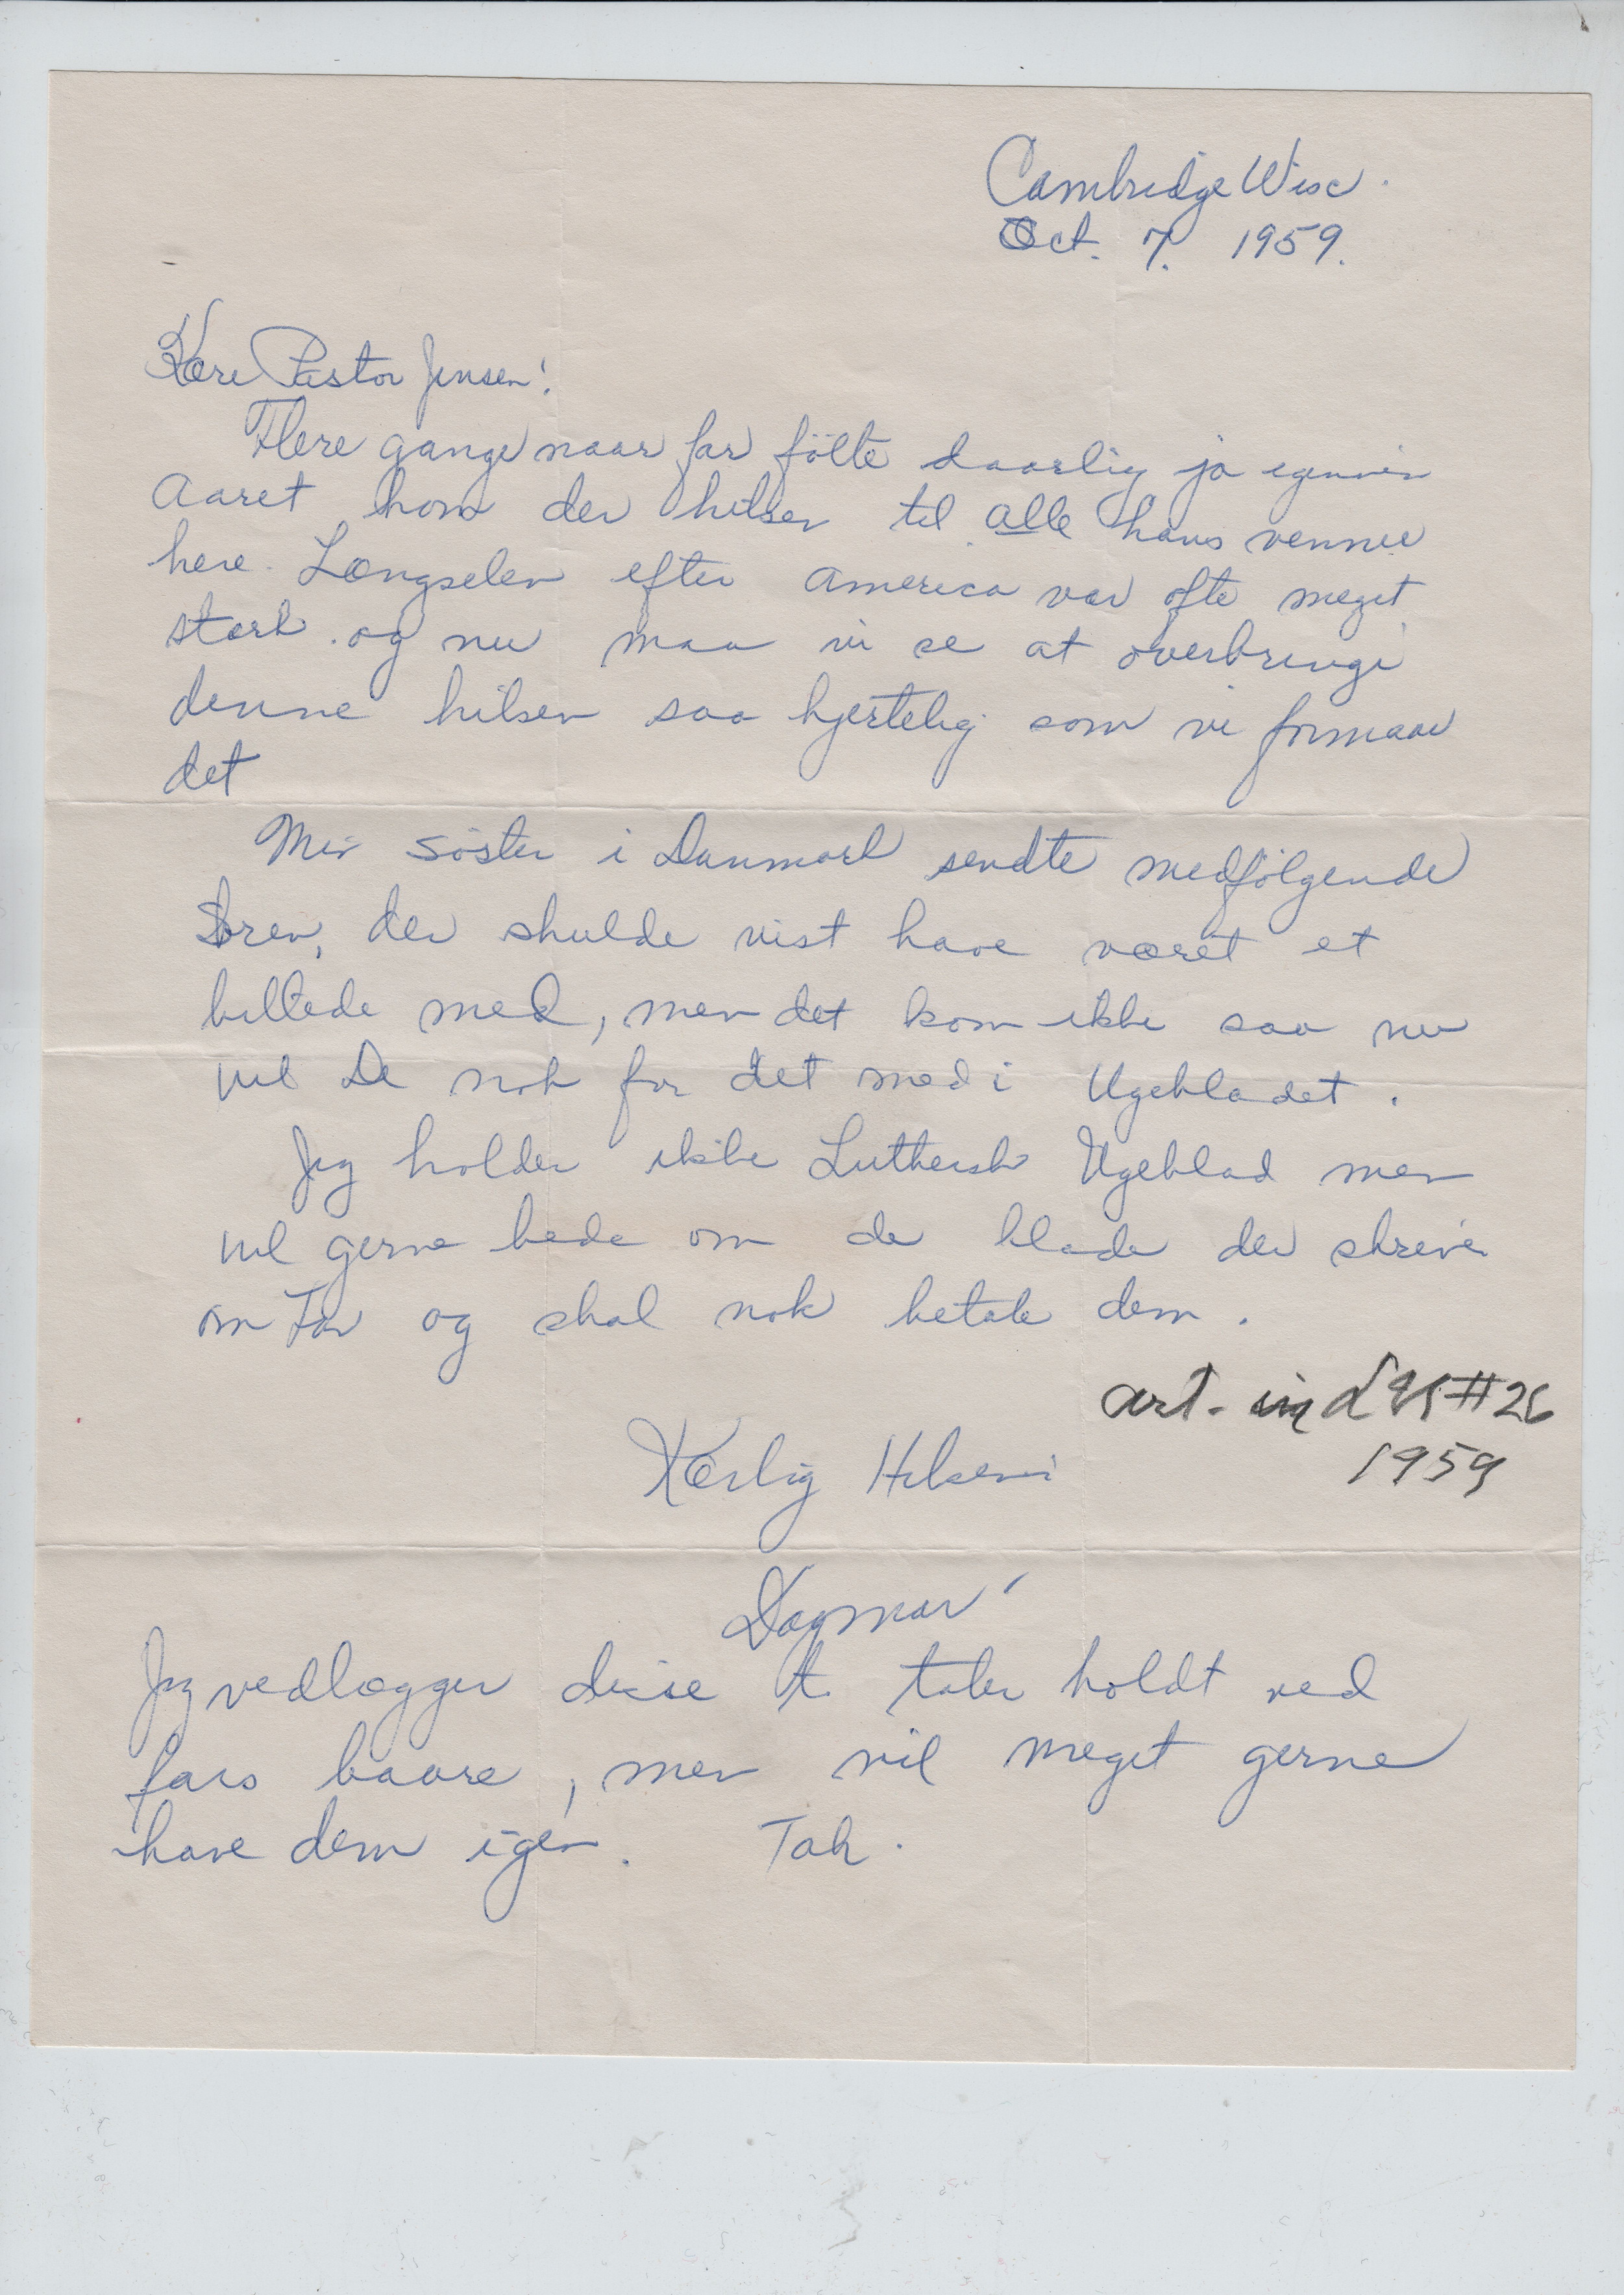 Cambridge Wisc.
Oct. 7. 1959.
Kære Pastor Jensen!
Flere gange naar far fölte daarlig ja igennem
Aaret kom der hilsen til alle hans venner
here. Længselen efter America var ofte meget
stærk. og nu maa vi se at overbringe
denne hilsen saa hjertelig som vi formaar
det
Min söster i Danmark sendte medfölgende
brev, der skulde vist have været et
billede med, men det kom ikke saa nu
vil De nok faa det med i Ugebladet.
Jeg holder ikke Luthersk Ugeblad men
vil gerne bede om de blade der skrives
om Far og skal nok betale dem.
art. in #26
1959
Kærlig Hilsen
Dagmar
Jeg vedlægger disse to taler holdt ved
fars baare, men vil meget gerne
have dem igen. Tak.